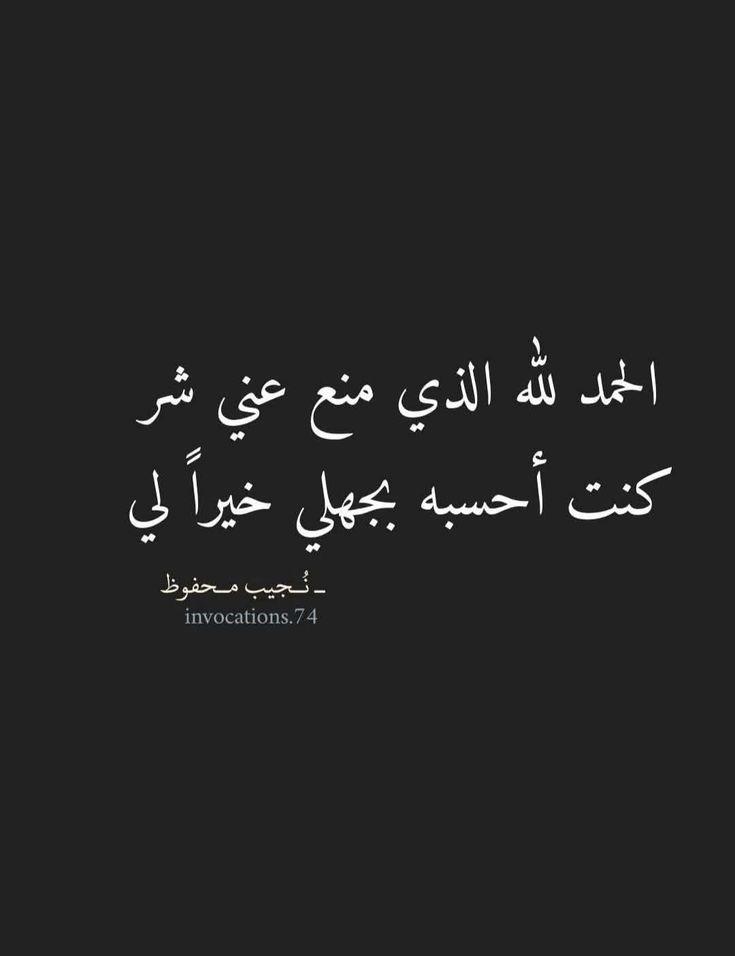 الحمد لله الذي منع عني شر
كنت أحسبه بجهلي خيراً لي
ـ نُـجيب مـحفوظ
invocations.74